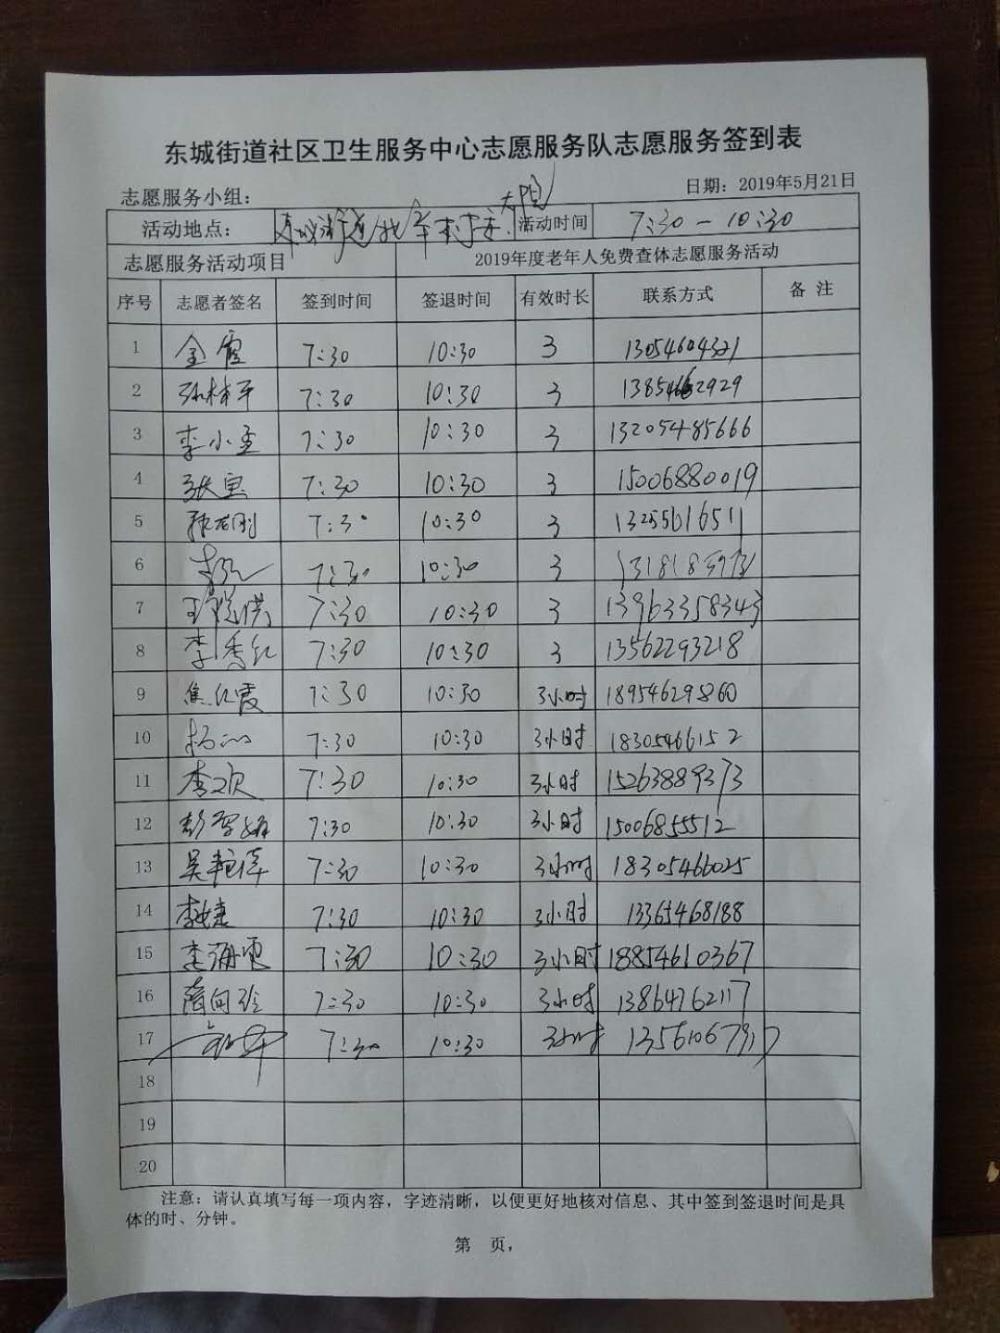 东城街道社区卫生服务中心志愿服务队志愿服务签到表
志愿服务小组： 日期：2019年5月21日
活动地点： 东城街道 活动时间 7:30 — 10:30
志愿服务活动项目 2019年度老年人免费查体志愿服务活动
序号 志愿者签名 签到时间 签退时间 有效时长 联系方式 备 注
1 金霞 7:30 10:30 3 13054604321
2 7:30 10:30 3
3 李小孟 7:30 10:30 3 13205485666
4 张宝 7:30 10:30 3 15006880019
5 7:30 10:30 3 13255616511
6 7:30 10:30 3
7 7:30 10:30 3 13963358343
8 李秀红 7:30 10:30 3 13562293218
9 焦红霞 7:30 10:30 3小时 18954629860
10 7:30 10:30 3小时 18305466152
11 李欢 7:30 10:30 3小时 15263889373
12 7:30 10:30 3小时 15006855512
13 吴艳萍 7:30 10:30 3小时 18305466025
14 7:30 10:30 3小时 13365468188
15 李海燕 7:30 10:30 3小时 18854610367
16 隋向玲 7:30 10:30 3小时 13864762117
17 7:30 10:30 3小时
18
19
20
注意：请认真填写每一项内容，字迹清晰，以便更好地核对信息、其中签到签退时间是具
体的时、分钟。
第 页，